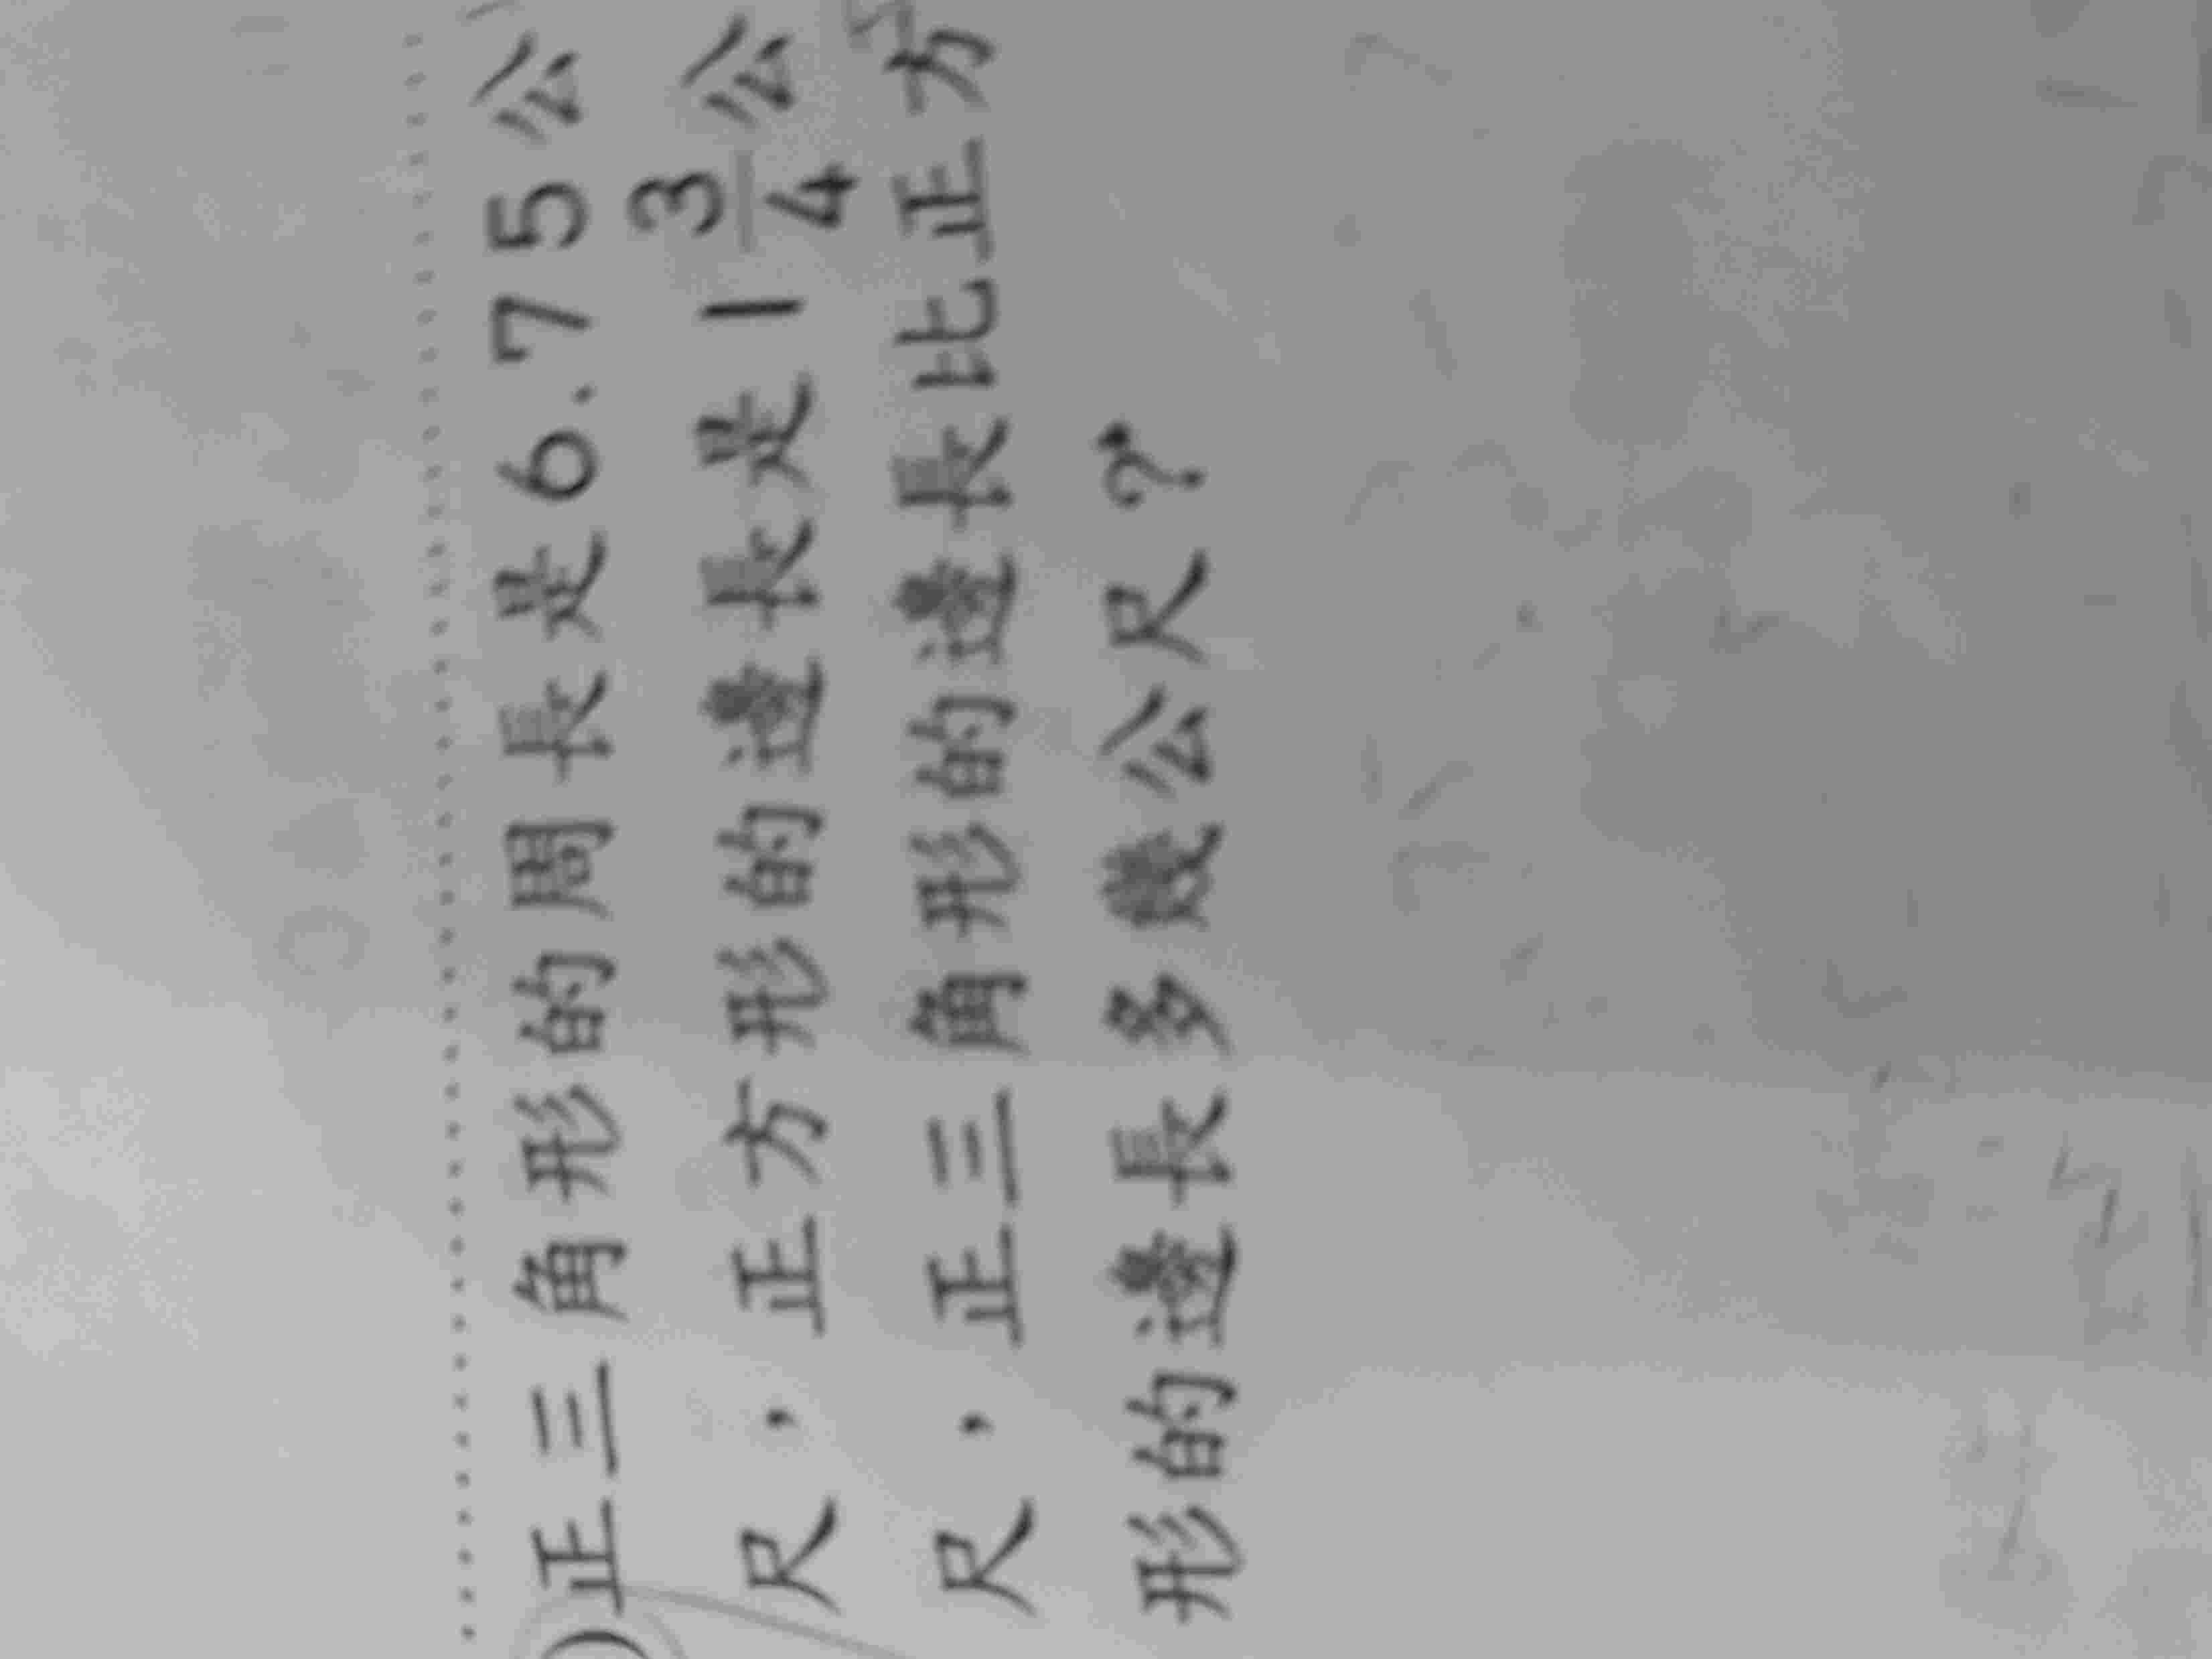 )正三角形的周長是6.75公
尺,正方形的邊長是1 3/4 公
尺,正三角形的邊長比正方
形的邊長多幾公尺?